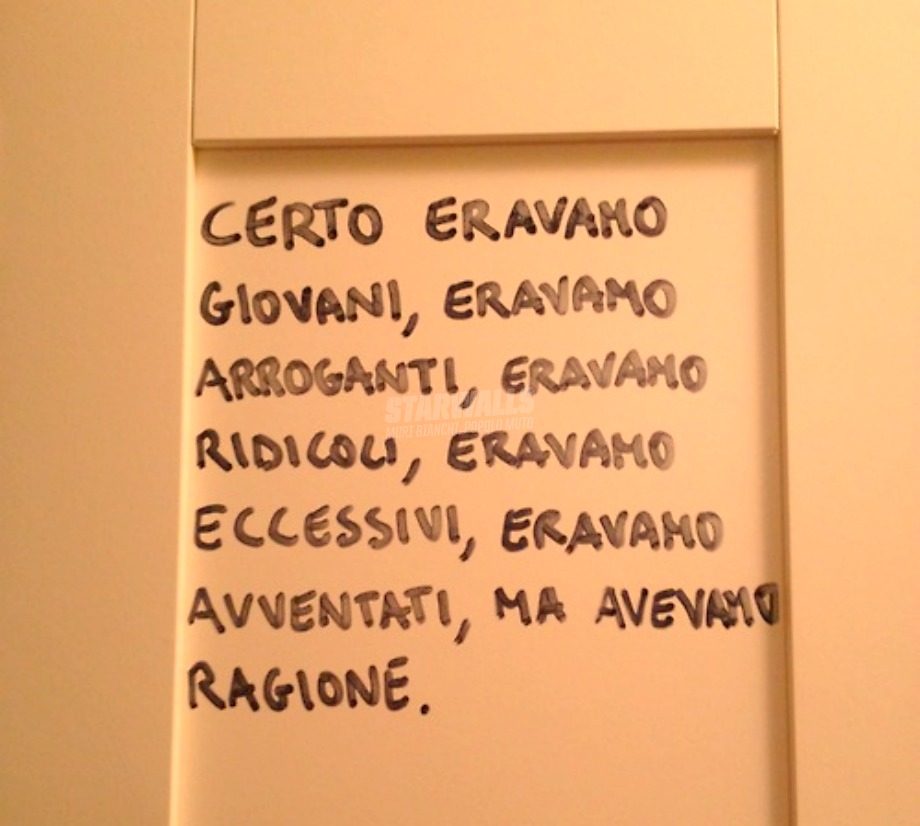 CERTO ERAVAMO
GIOVANI, ERAVAMO
ARROGANTI, ERAVAMO
STARWALLS
MURI BIANCHI, POPOLO MUTO
RIDICOLI, ERAVAMO
ECCESSIVI, ERAVAMO
AVVENTATI, MA AVEVAMO
RAGIONE.